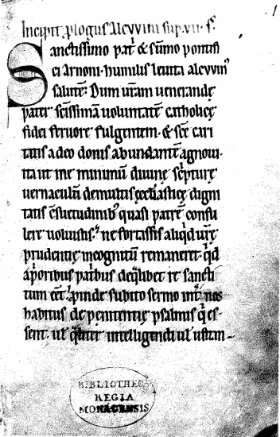 Incipit plogus alcvvini sup. vii. ps.
Sanctissimo patri & sūmo pontifi
ci Arnoni. humilis leuita alcvvin
salutē. Dum uram uenerande
pater scissimā voluntatē catholice
fidei feruore fulgentem. & scē cari
tatis adeo donis abundantē agnoui.
ita ut me minimū diuine scripture
vernaculū de multis eccliastice digni
tatis csuetudinib; quasi patrē consu
lere voluistis. ne fortassis aliqd ure
prudentie incognitū remaneret. qd
a prioribus patribus de qlibet re sancti
tum eēt. Proinde subito sermo int nos
habitus de penitentie psalmis q es
sent. ul qliter intelligendi ul usitan-
BIBLIOTHECA
REGIA
MONACENSIS